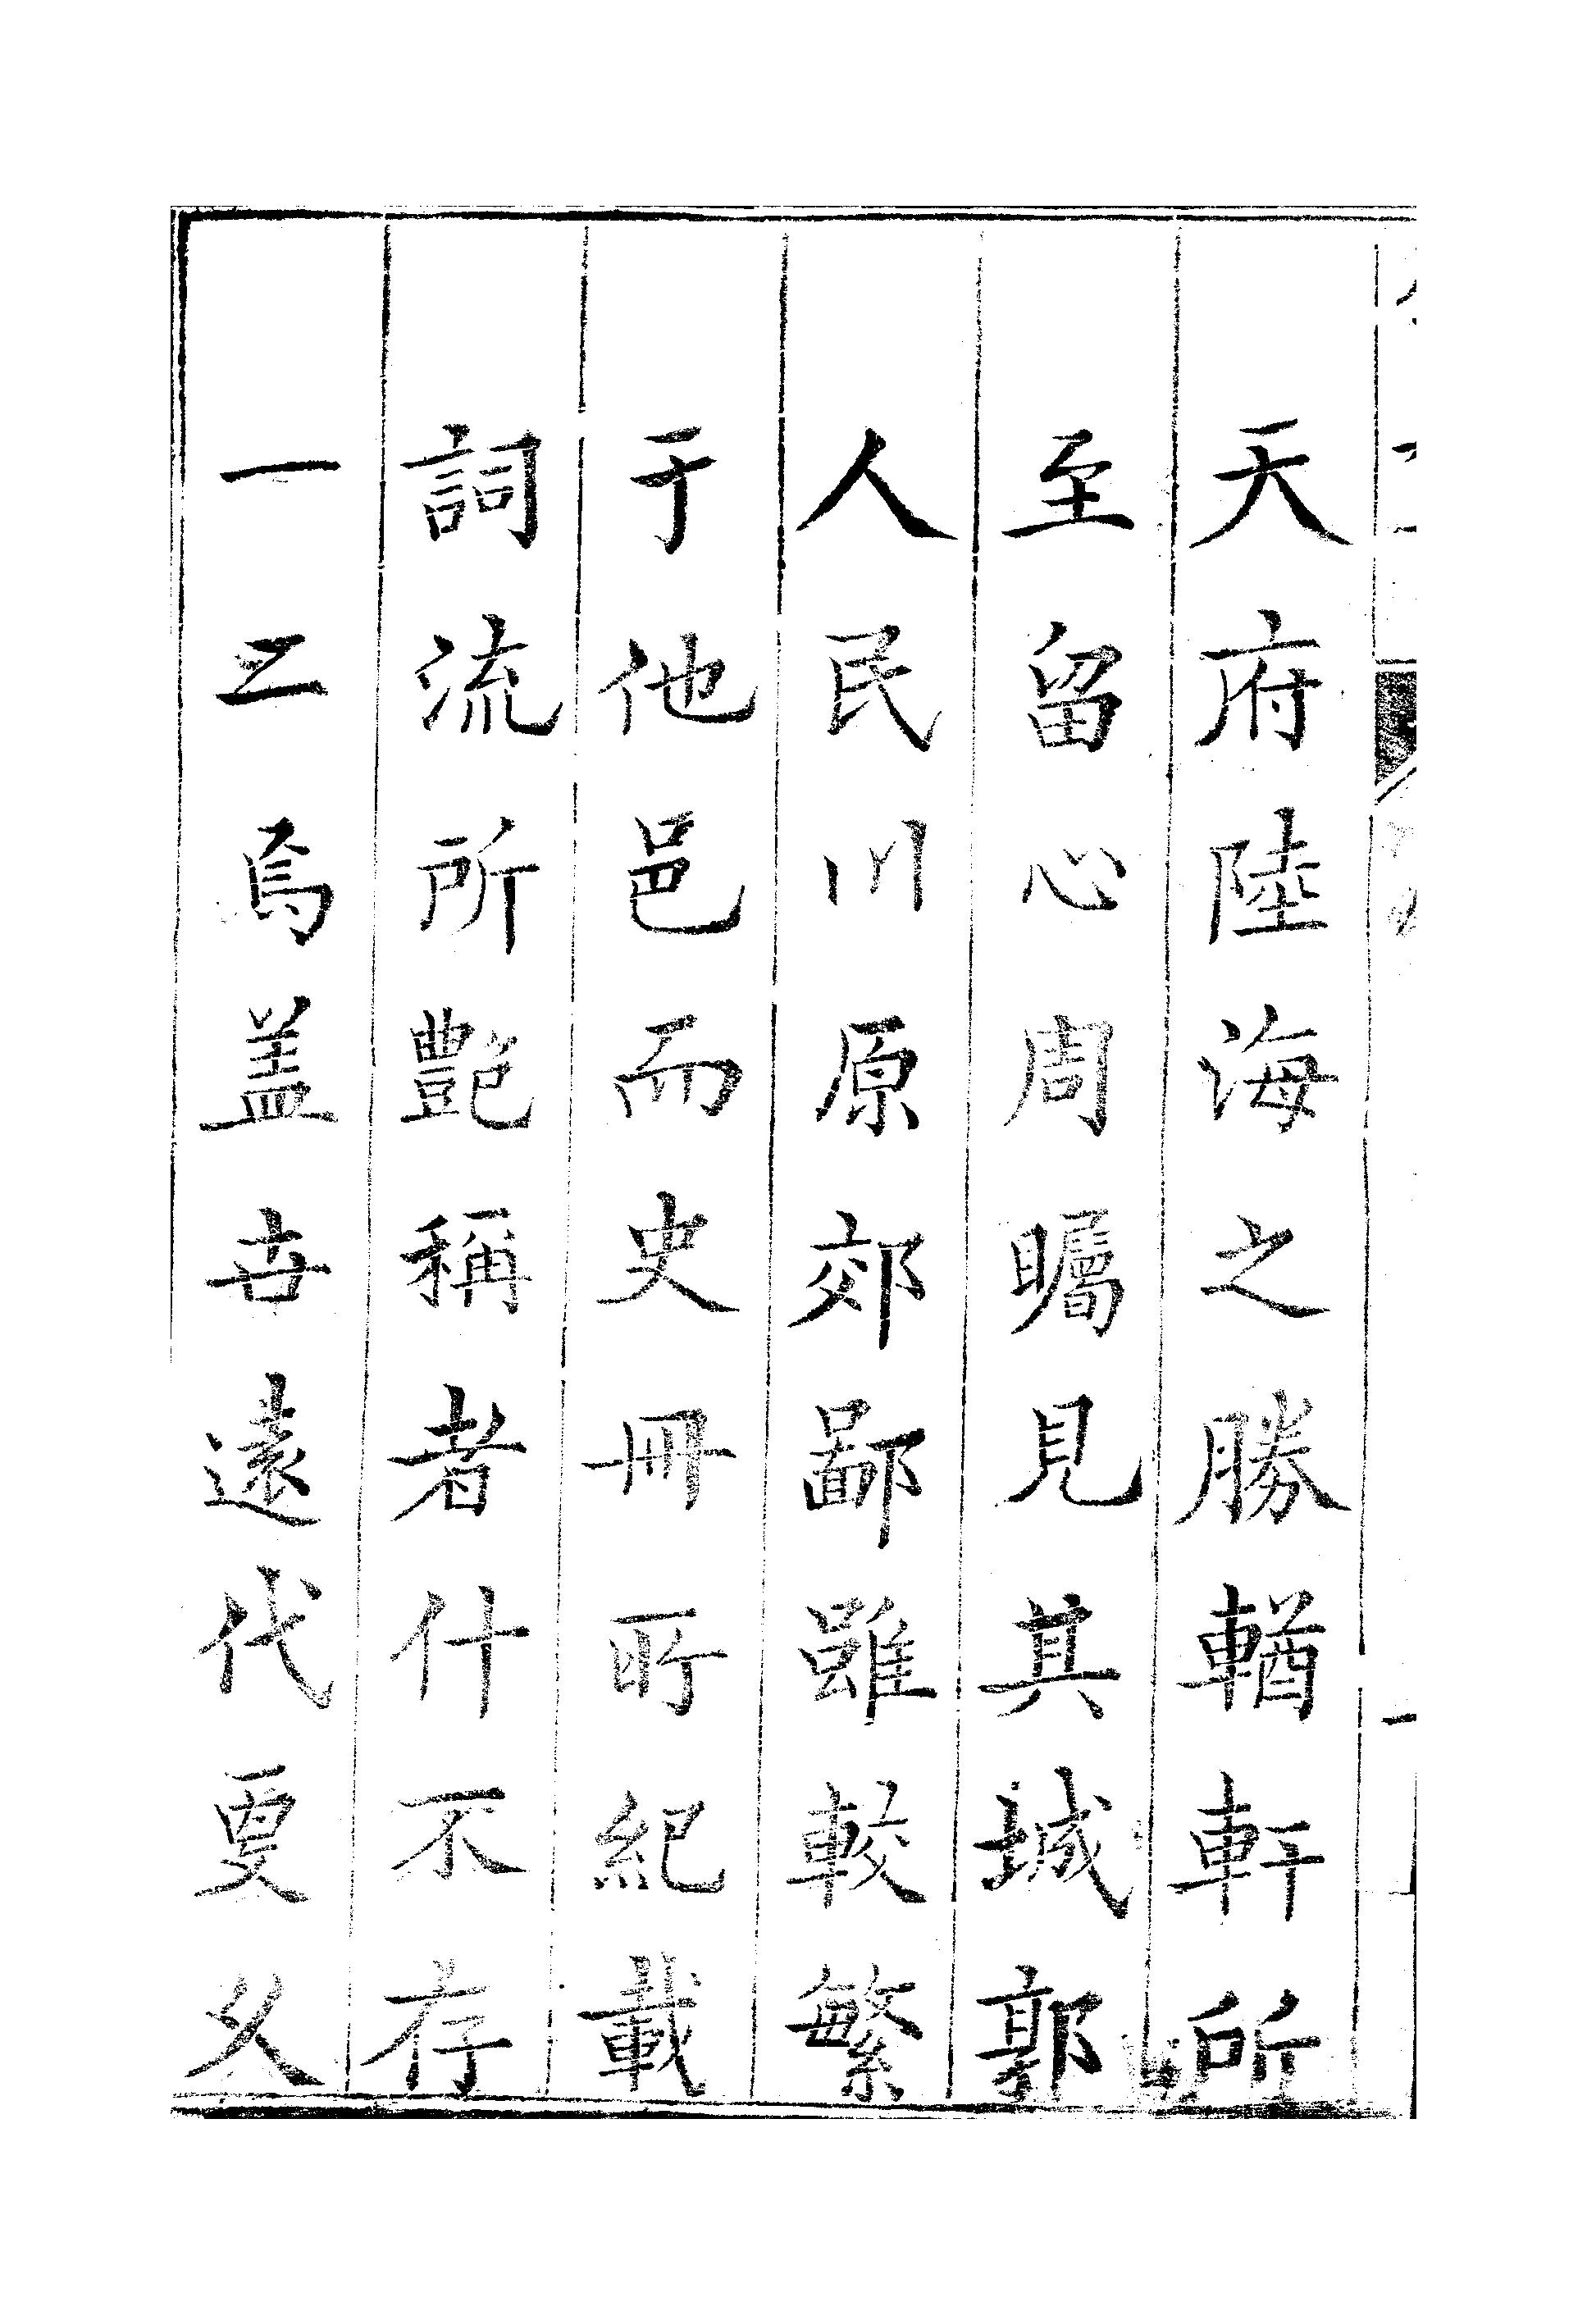 天府陸海之勝輶軒所
至留心周矚見其城郭
人民川原郊鄙雖較繁
于他邑而史冊所紀載
詞流所艷稱者什不存
一二焉蓋世遠代更父